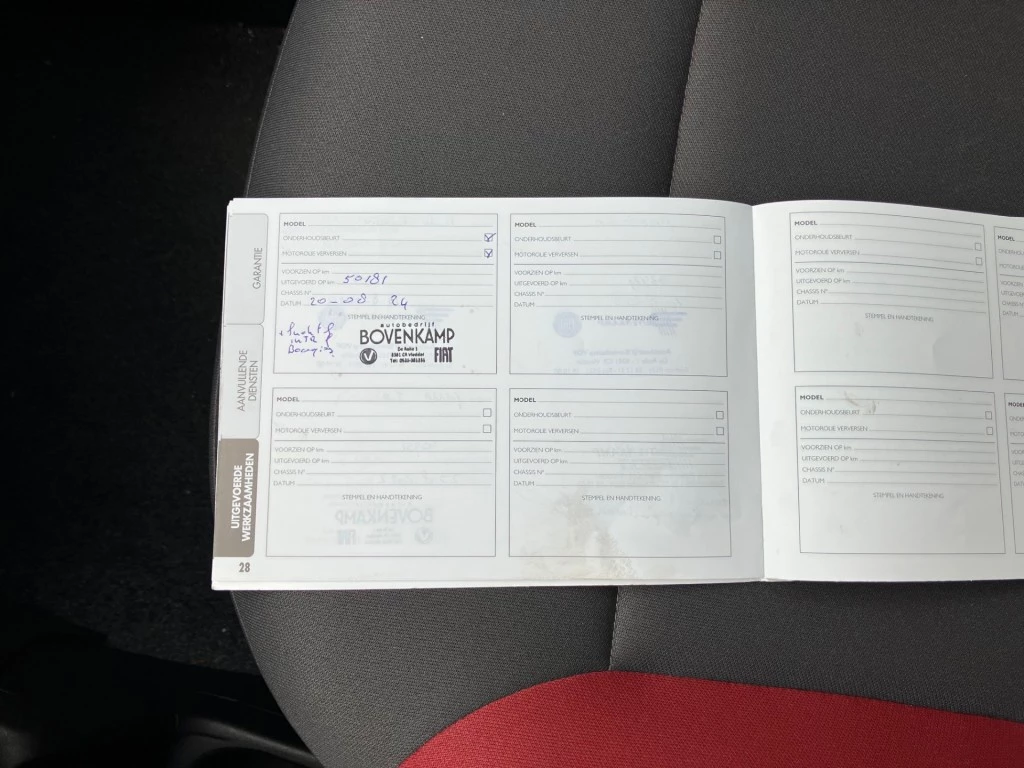 GARANTIE
AANVULLENDE
DIENSTEN
UITGEVOERDE
WERKZAAMHEDEN
28
MODEL
ONDERHOUDSBEURT
MOTOROLIE VERVERSEN
VOORZIEN OP km
UITGEVOERD OP km 50181
CHASSIS N°
DATUM 20-08 24
STEMPEL EN HANDTEKENING
autobedrijf
BOVENKAMP
FIAT
MODEL
ONDERHOUDSBEURT
MOTOROLIE VERVERSEN
VOORZIEN OP km
UITGEVOERD OP km
CHASSIS N°
DATUM
STEMPEL EN HANDTEKENING
MODEL
ONDERHOUDSBEURT
MOTOROLIE VERVERSEN
VOORZIEN OP km
UITGEVOERD OP km
CHASSIS N°
DATUM
STEMPEL EN HANDTEKENING
MODEL
ONDERHOUDSBEURT
MOTOROLIE VERVERSEN
VOORZIEN OP km
UITGEVOERD OP km
CHASSIS N°
DATUM
STEMPEL EN HANDTEKENING
MODEL
ONDERHOUDSBEURT
MOTOROLIE VERVERSEN
VOORZIEN OP km
UITGEVOERD OP km
CHASSIS N°
DATUM
STEMPEL EN HANDTEKENING
MODEL
ONDERHOUDSBEURT
MOTOROLIE VERVERSEN
VOORZIEN OP km
UITGEVOERD OP km
CHASSIS N°
DATUM
STEMPEL EN HANDTEKENING